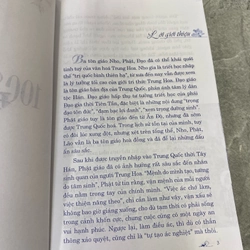 Lời giới thiệu
Ba tôn giáo Nho, Phật, Đạo đã có thể khái quát
sinh toàn văn hoá Trung Hoa. Nho gia là triết học nhập
thế "trị quốc bình thiên hạ", từ xưa đến nay vẫn được xem
là lý tưởng tối cao của giới trí thức Trung Hoa. Đạo giáo
là tôn giáo bản địa của Trung Quốc, phản ánh tâm lý dân
tộc Hán. Đạo giáo tập hợp hệ tư tưởng, triết học của thời
đại Đạo gia thời Tiên Tần, đặc biệt là những nội dung "trong
đục tồn đức", "đạm bạc lợi danh", "xem trọng dưỡng sinh".
Phật giáo tuy là tôn giáo đến từ Ấn Độ, nhưng đã sớm
được Trung Quốc hoá. Trong lịch sử dài của mình, tuy
có đôi lúc xung đột, nhưng xét trên tổng thể, Nho, Phật,
Lão vẫn là ba hình thái đồng hành và đều để lại những dấu
ấn sâu sắc.
Sau khi được truyền nhập vào Trung Quốc thời Tây
Hán, Phật giáo đã có ảnh hưởng rất sâu sắc đến nhân
sinh quan của người Trung Hoa. "Mệnh do mình tạo, tướng
do tâm sinh", Phật tử tin rằng, vận mệnh của mỗi người
đều nằm trong tay của chính mình. "Việc ác chớ làm,
việc thiện nông theo", chỉ cần làm như vậy, vận tốt sẽ
không bao giờ giáng xuống, cho dù tạm thời có phải sống
trong cảnh khốn cực, nhưng cuộc cũng có một ngày an
vui hạnh phúc. Ngược lại, làm điều ác, thì dù có thêm
thông xảo quyệt, cũng chỉ là "tự tạo ác nghiệt" mà thôi.
5